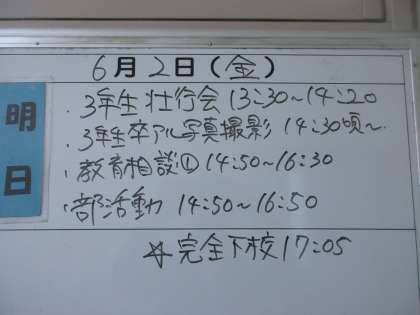 6月2日(金)
明日
・3年生壮行会 13:30～14:20
・3年生卒アル写真撮影 14:30頃～
・教育相談① 14:50～16:30
・部活動 14:50～16:50
☆完全下校17:05